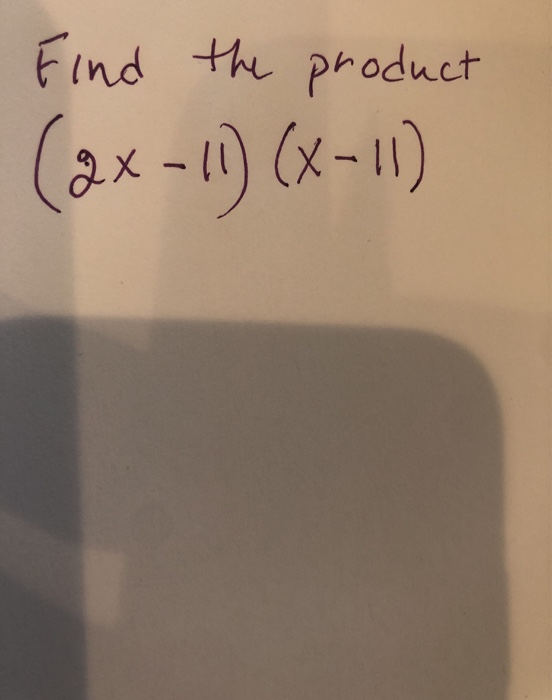 Find the product
(2x - 11) (x - 11)